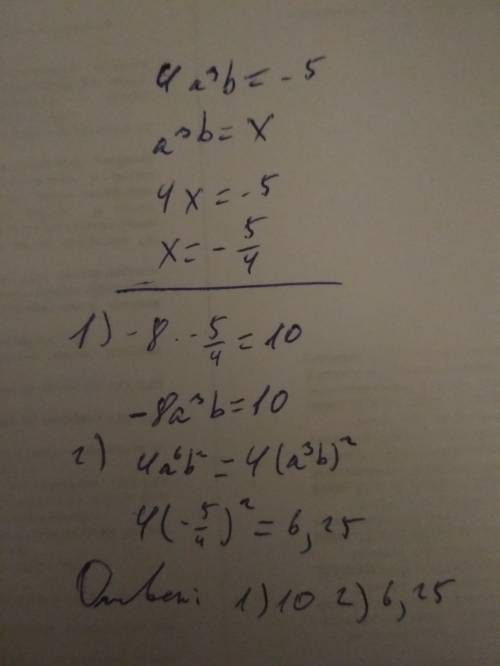 4a³b = -5
a³b = x
4x = -5
x = -5/4
1) -8 · -5/4 = 10
-8a³b = 10
2) 4a⁶b² = 4(a³b)²
4(-5/4)² = 6,25
Ответ: 1) 10 2) 6,25